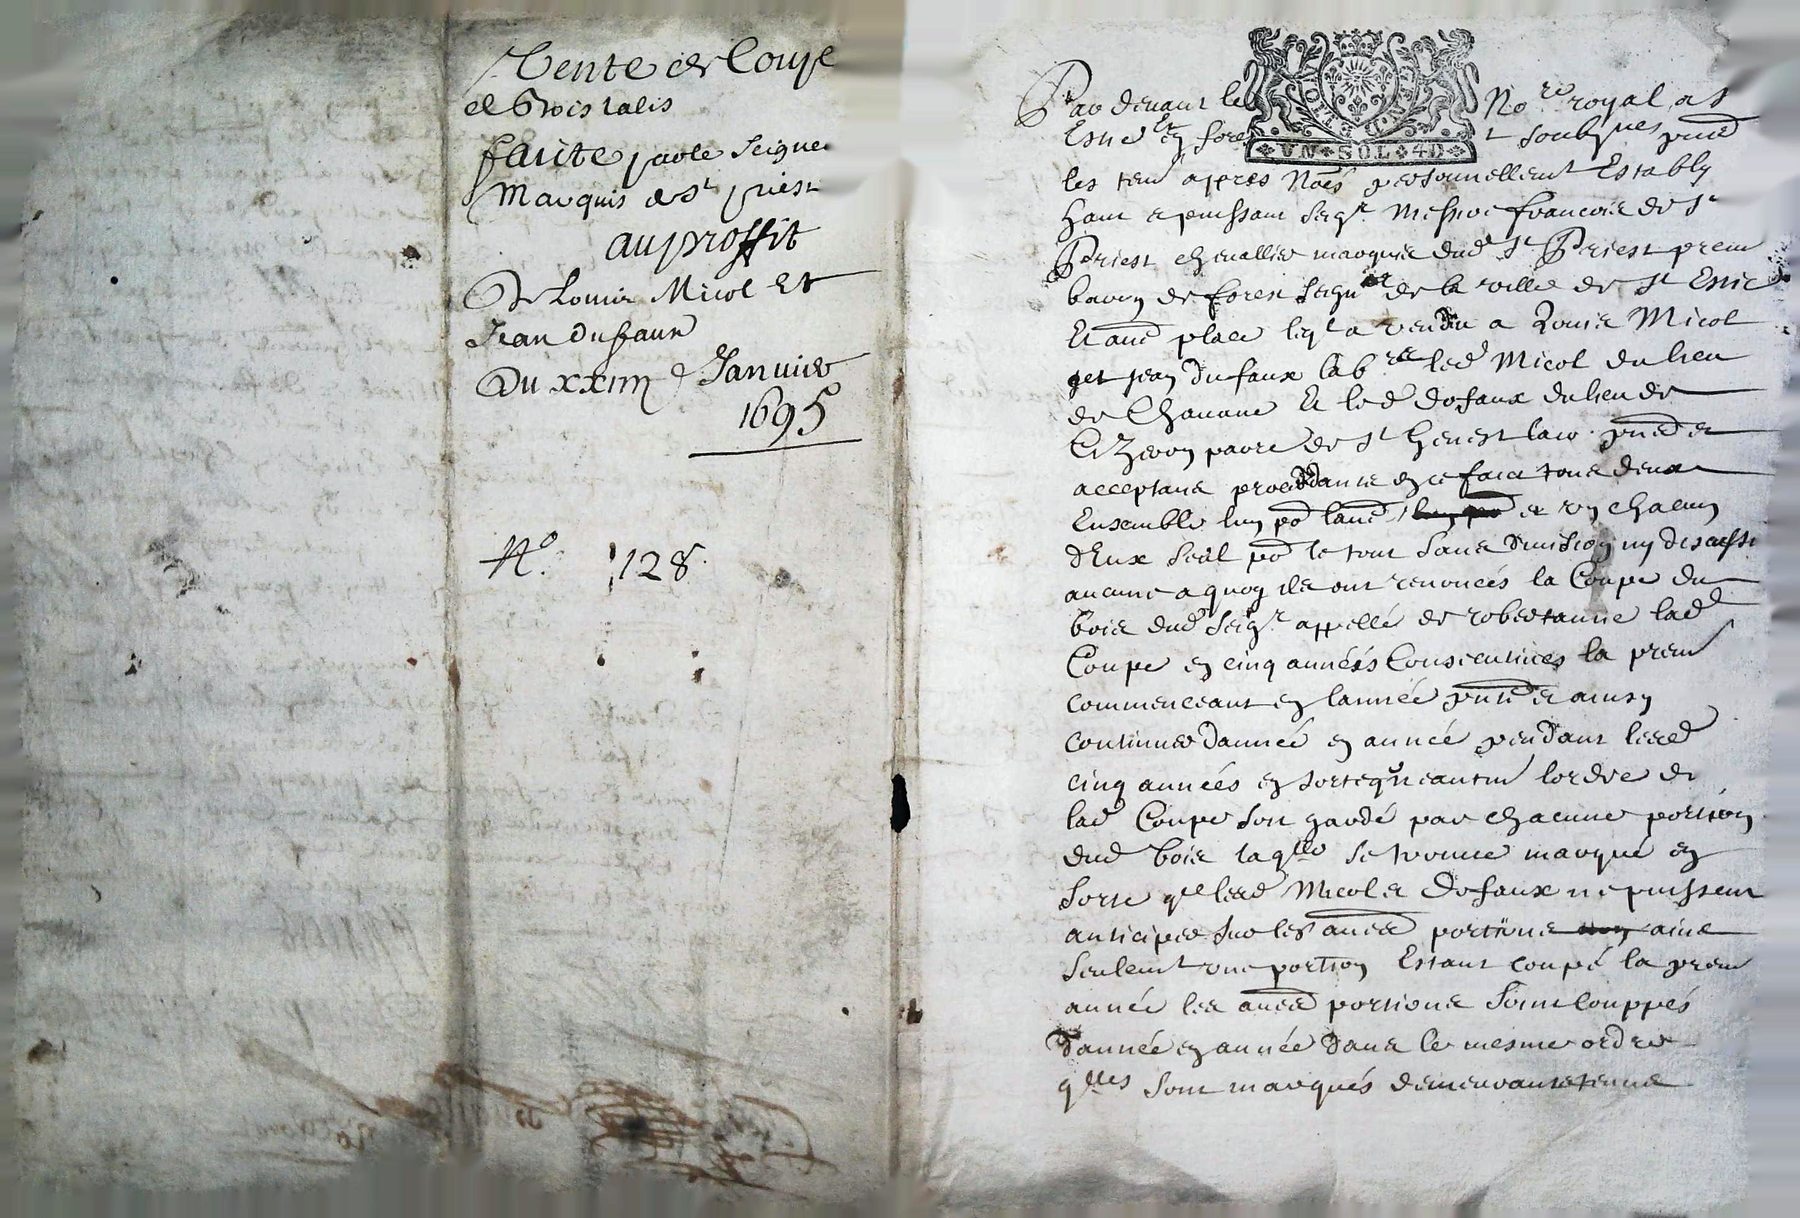 Vente de Coupe
de bois talis
faritte par le Seigneu
Marquis de St priest
au proffit
De Louis Micol Et
Jean Dufaux
Du xxiiii e Janvier
1695
No. 128
Par devant le No.re royal a St
Estne en fore soubsnes pnd
les tem apres Nom̃es personnellemt Estably
haut e puissant seigr Messire francois de St
Priest chevallier marquis dud St Priest prem
baron de forest seignr de la ville de St Estie
Et aud place leql a vendu a Louis Micol
et jean dufaux lab.re led Micol du lieu
de Chavane Et led dofaux du lieu de
parr de St Genest lair pnd e
acceptans procedants en ce faict tous deux
Ensemble lun po laud et un chacun
dEux seul po le tout sans division ny discussi
aucune a quoy ils ont renoncés la Coupe du
bois dud seigr appellé de robertanne lad
Coupe en cinq années Consecutives la prem
commenceant en lannée pnte e ainsy
continuer dannée en année pendant lesd
cinq années en sorte que lordre de
lad Coupe soit gardé par chacune portion
dud bois laqlle se trouve marqué en
sorte qe lesd Micol e Dofaux ne puissent
anticiper sur les aues portions ains
seulemt une portion Estant coupé la prem
année les aues portions soint Couppés
dannée en année dans le mesme ordre
qlles sont marqués
UN SOL 4D